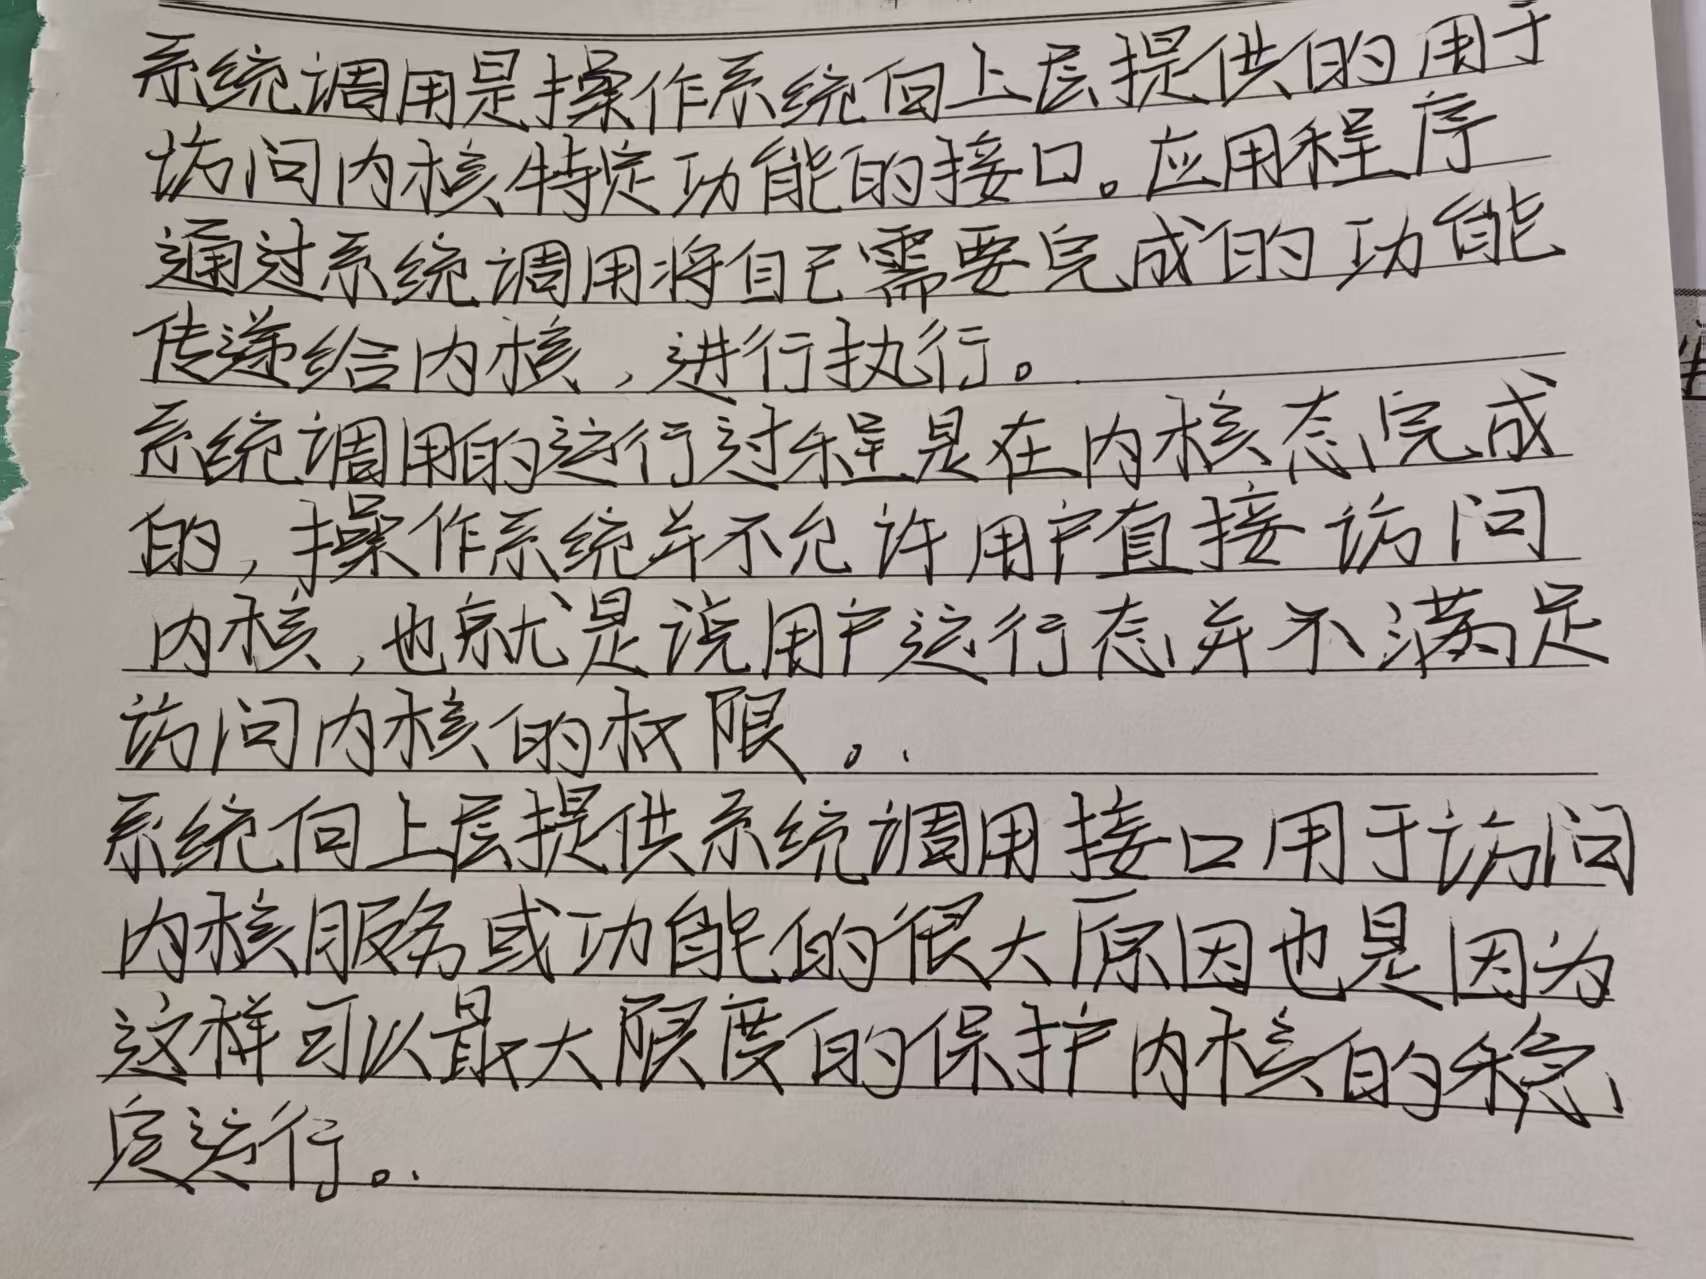 系统调用是操作系统向上层提供的用于
访问内核特定功能的接口。应用程序
通过系统调用将自己需要完成的功能
传递给内核，进行执行。
系统调用的运行过程是在内核态完成
的，操作系统并不允许用户直接访问
内核，也就是说用户运行态并不满足
访问内核的权限。
系统向上层提供系统调用接口用于访问
内核服务或功能的很大原因也是因为
这样可以最大限度的保护内核的稳
定运行。